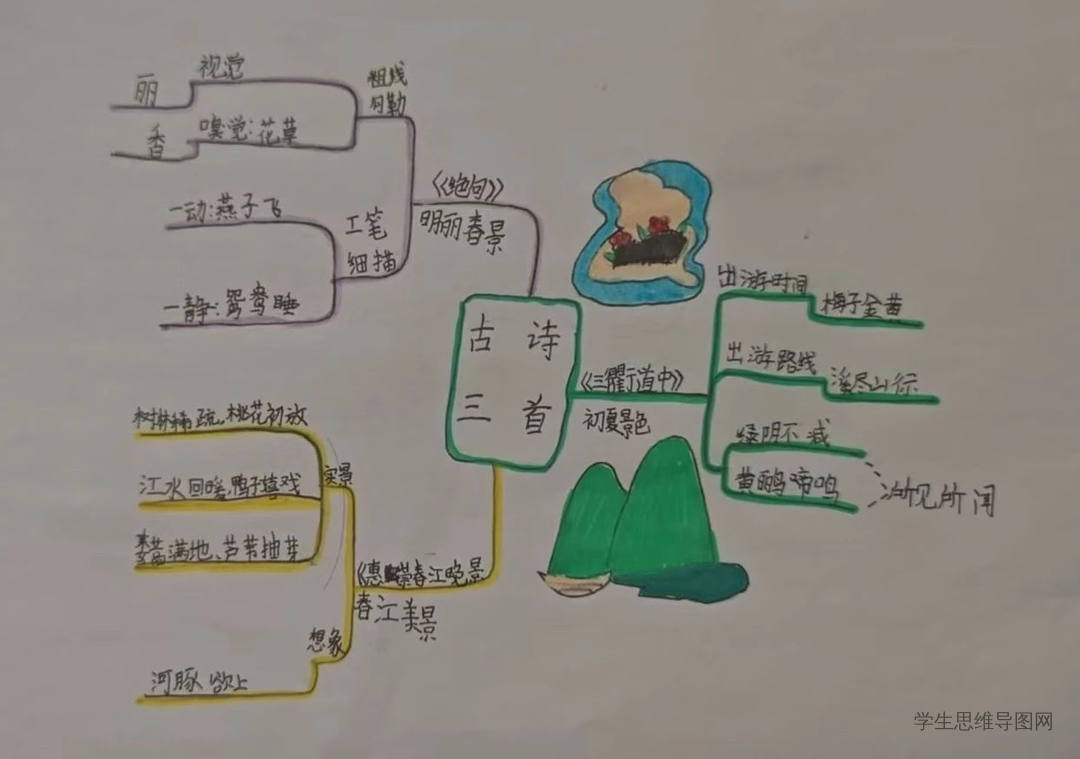 古诗
三首
《绝句》
明丽春景
粗线
勾勒
视觉
丽
嗅觉:花草
香
工笔
细描
一动:燕子飞
一静:鸳鸯睡
《三衢道中》
初夏景色
出游时间
梅子金黄
出游路线
溪尽山行
绿阴不减
黄鹂啼鸣
所见所闻
《惠崇春江晚景
春江美景
实景
树林稀疏、桃花初放
江水回暖,鸭子嬉戏
蒌蒿满地、芦苇抽芽
想象
河豚欲上
学生思维导图网